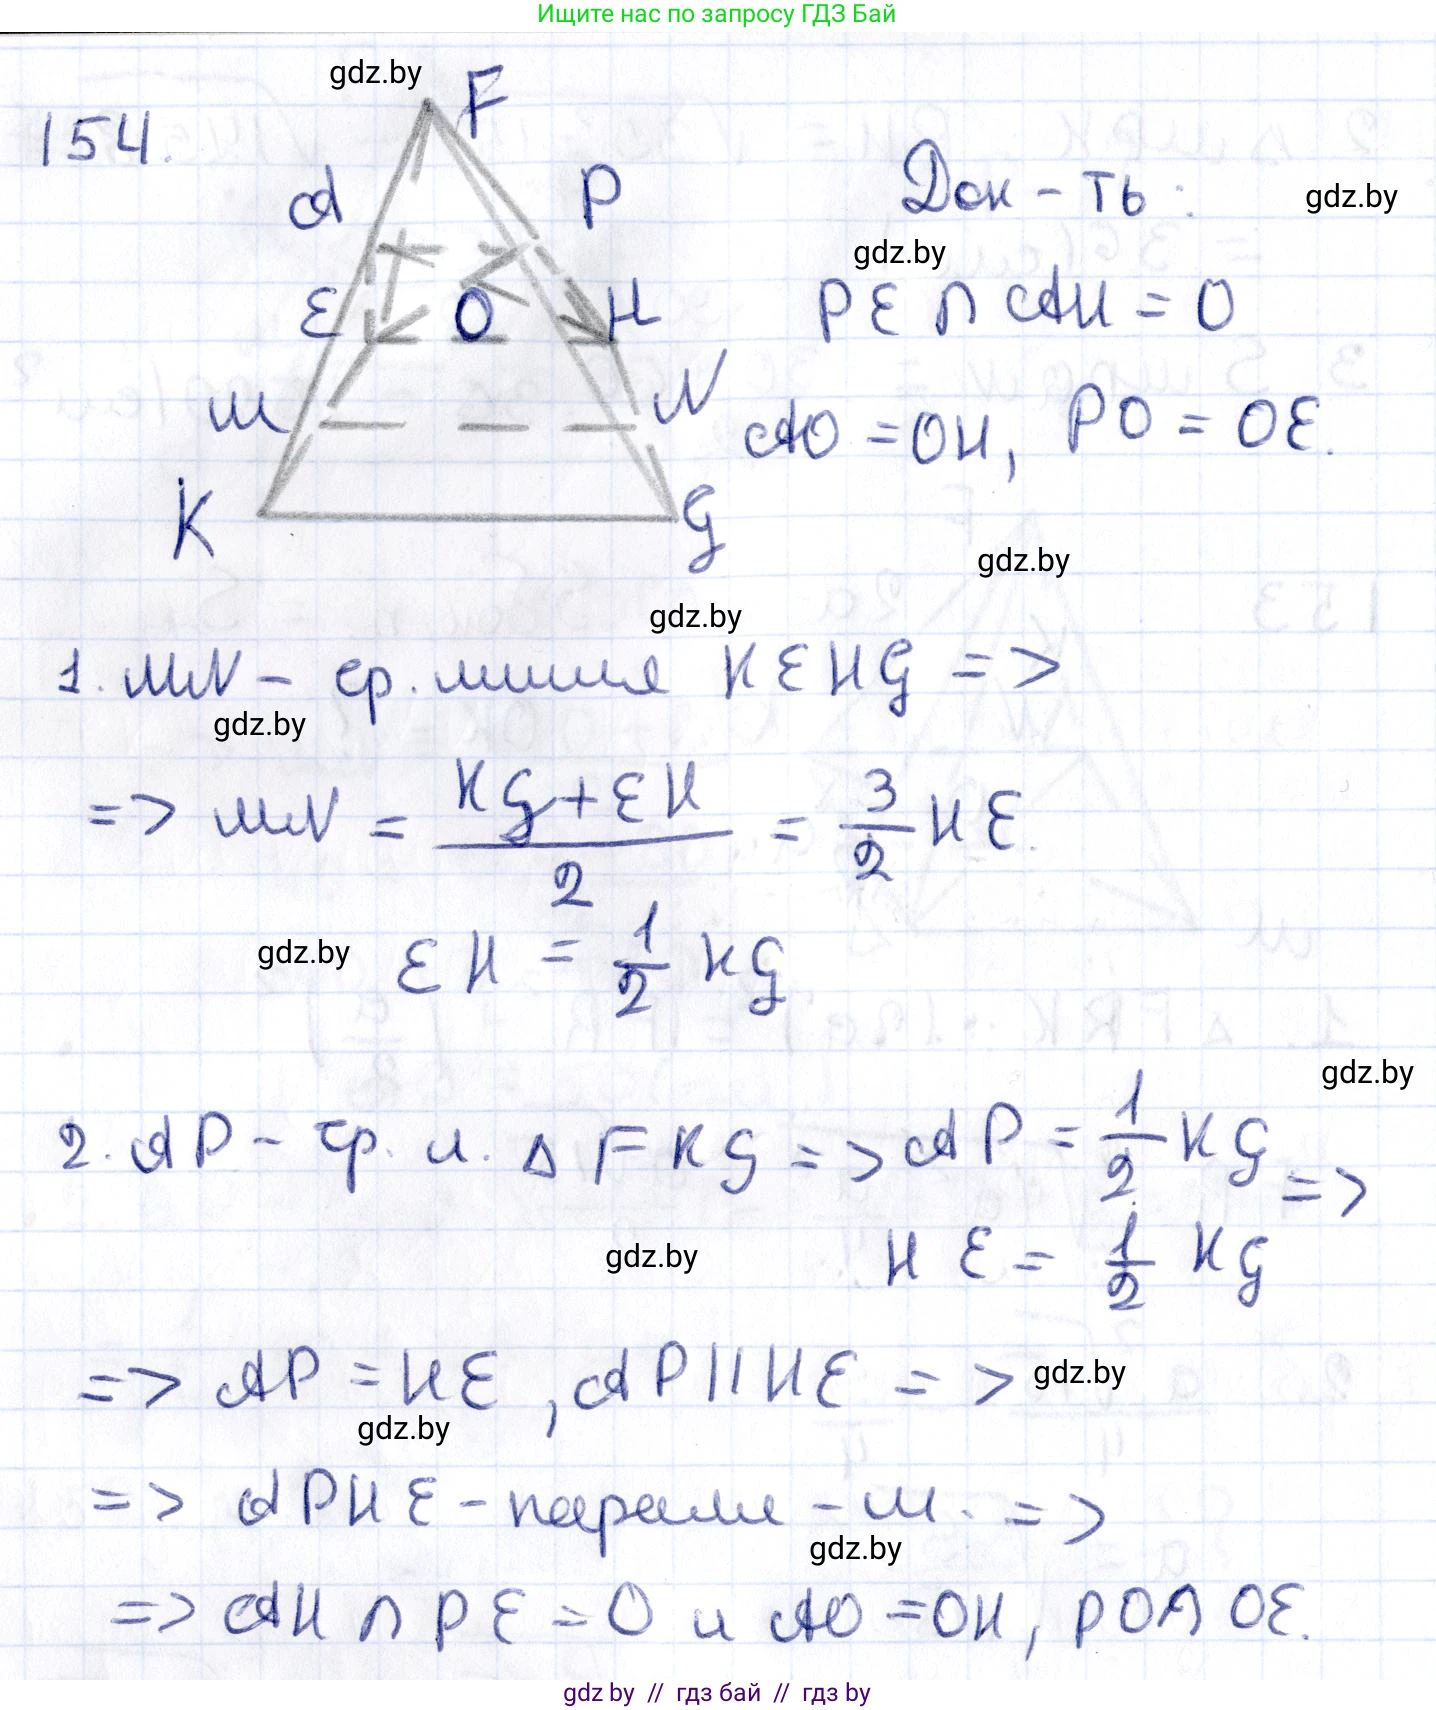 Ищите нас по запросу ГДЗ Бай
gdz.by
154.
F
A
P
E
O
H
M
N
K
G
Док-ть:
gdz.by
gdz.by
PE ∩ AH = O
AO = OH, PO = OE.
gdz.by
gdz.by
1. MN - ср. линия KEHG =>
gdz.by
=> MN = (KG + EH)/2 = 3/2 HE.
gdz.by
EH = 1/2 KG
gdz.by
2. AP - ср. л. Δ FKG => AP = 1/2 KG =>
gdz.by
HE = 1/2 KG
=> AP = HE, AP || HE =>
gdz.by
gdz.by
=> APHE - паралл-м. =>
gdz.by
=> AH ∩ PE = O и AO = OH, PO ∩ OE.
gdz by // гдз бай // гдз by